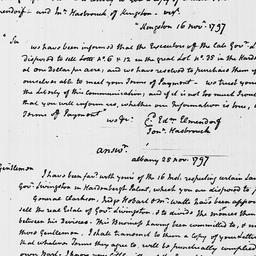 endorf - and Jno. Hasbrouck of Kingston - viz.
Kingston 16 nov. 1797
"Sir
we have been informed that the Executors of the late Gov.
disposed to sell Lotts No. 6 & 12 in the Great Lot No. 35 in the Hards
at one dollar per acre; and we have resolved to purchase them
ourselves able to meet your Terms of Payment - we have
the Liberty of this Communication; and if it is not too much
that you will inform us, whether our Information is true,
Terms of Payment"
we &c. Edm. Elmendorf
Jno. Hasbrouck
answr.
albany 28 nov. 1797
Gentlemen
I have been favd. with yours of the 16 inst. respecting certain Lands
Gov. Livingston in Hardenbergh Patent, which you are disposed to
General Clarkson, Judge Hobart & Mr. Watts have been
sell the real Estate of Gov. Livingston & to divide the monies
between his Devisees - This Business having been committed to
those Gentlemen. I shall transmit to them a Copy of your
that whatever Terms they agree to, will be punctually complied